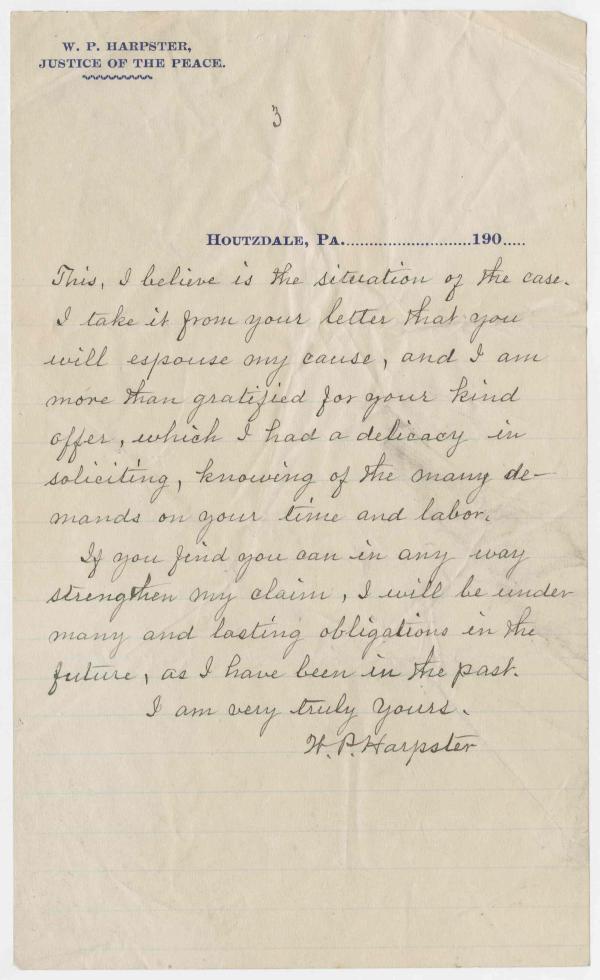 W. P. HARPSTER,
JUSTICE OF THE PEACE.
3
HOUTZDALE, PA...........................190.....
This, I believe is the situation of the case.
I take it from your letter that you
will espouse my cause, and I am
more than gratified for your kind
offer, which I had a delicacy in
soliciting, knowing of the many de-
mands on your time and labor.
If you find you can in any way
strengthen my claim, I will be under
many and lasting obligations in the
future, as I have been in the past.
I am very truly yours.
W. P. Harpster